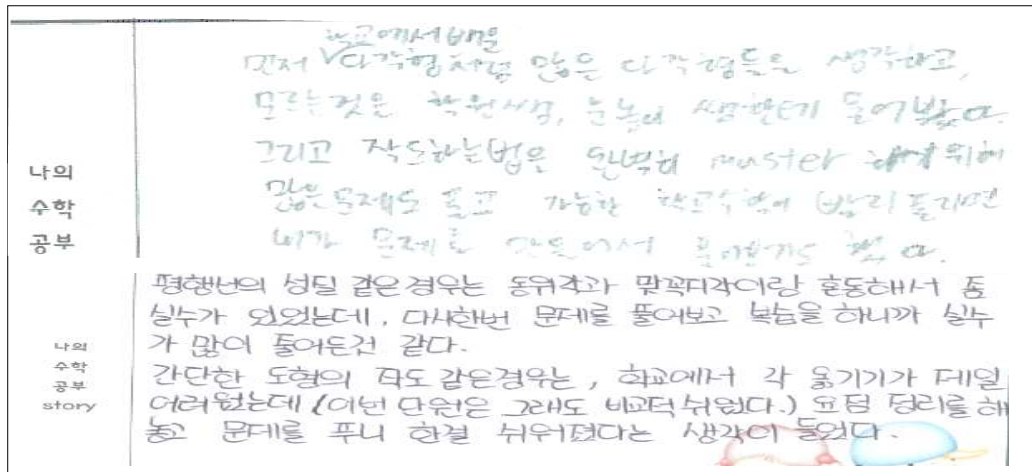 학교에서 배운
먼저 ∨다각형처럼 많은 다각형들을 생각하고,
모르는것은 학원쌤, 눈높이 쌤한테 물어봤다.
그리고 작도하는법은 완벽히 muster 하기 위해
많은문제도 풀고 가능한 학교수학이 빨리 풀리면
내가 문제를 만들어서 풀어보기도 했다.
나의
수학
공부
평행선의 성질 같은경우는 동위각과 맞꼭지각이랑 혼동해서 좀
실수가 있었는데, 다시한번 문제를 풀어보고 복습을 하니까 실수
가 많이 줄어든것 같다.
간단한 도형의 작도 같은경우는, 학교에서 각 옮기기가 제일
어려웠는데 (이번 단원은 그래도 비교적 쉬웠다.) 요점 정리를 해
놓고 문제를 푸니 한결 쉬워졌다는 생각이 들었다.
나의
수학
공부
story